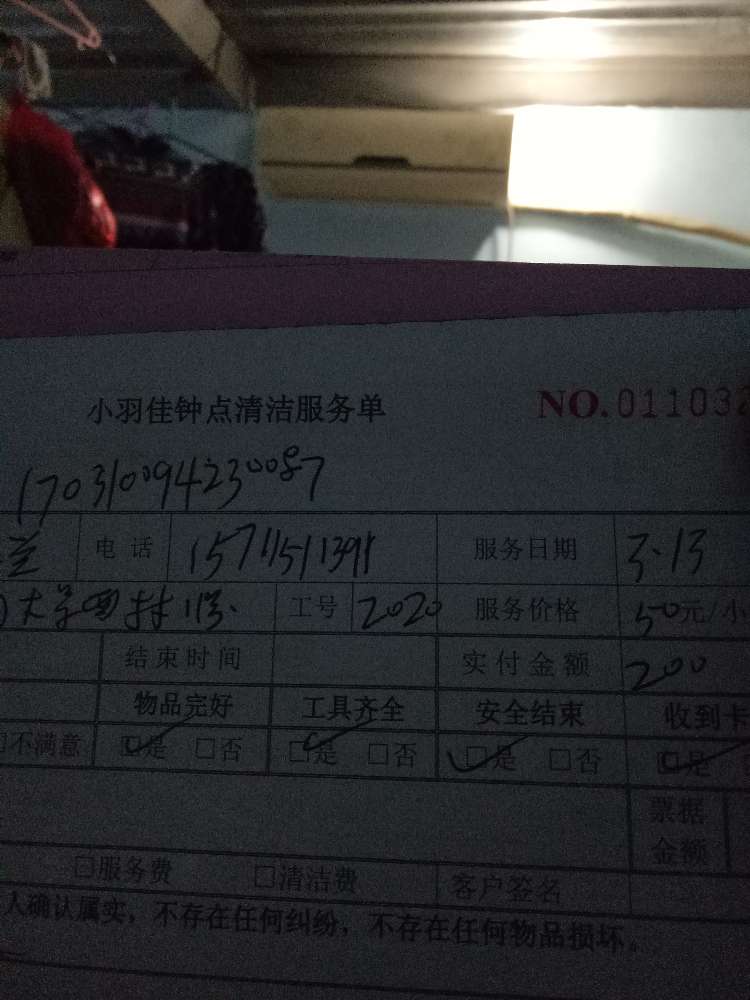 小羽佳钟点清洁服务单 NO.011032
170310094230087
兰 电话 15711511391 服务日期 3.13
大学四村 工号 2020 服务价格 50元/小
结束时间 实付金额 200
物品完好 工具齐全 安全结束 收到卡
□不满意 □是 □否 □是 □否 □是 □否 □是
票据
金额
□服务费 □清洁费 客户签名
人确认属实，不存在任何纠纷，不存在任何物品损坏。